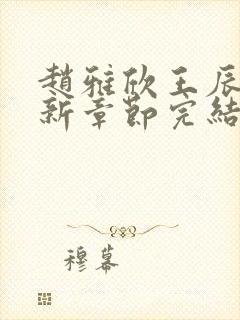 趙雅欣王辰
新章節完結
穆幕